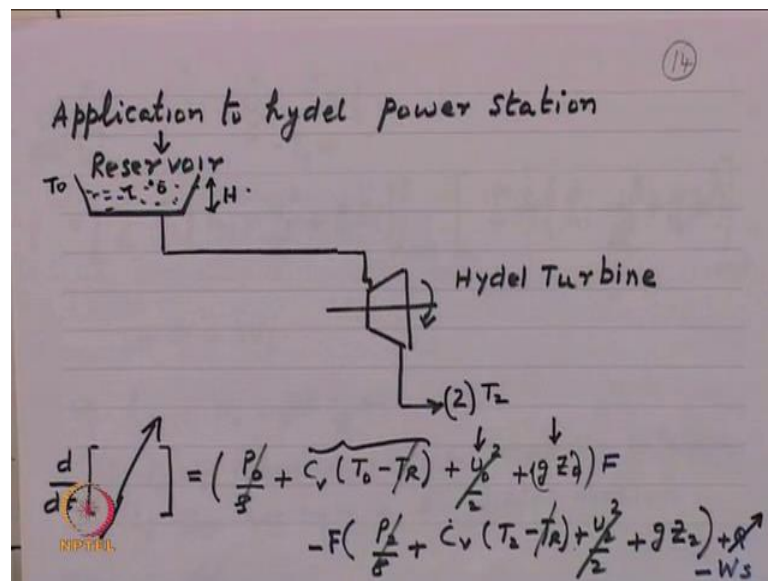 14
Application to hydel power station
Reservoir
T0
H.
Hydel Turbine
(2) T2
d/dt [ ] = ( P0/ρ + Cv (T0 - TR) + u0²/2 + (g Z0) ) F
- F ( P2/ρ + Cv (T2 - TR) + u2²/2 + g Z2 ) + Q
- Ws
NPTEL